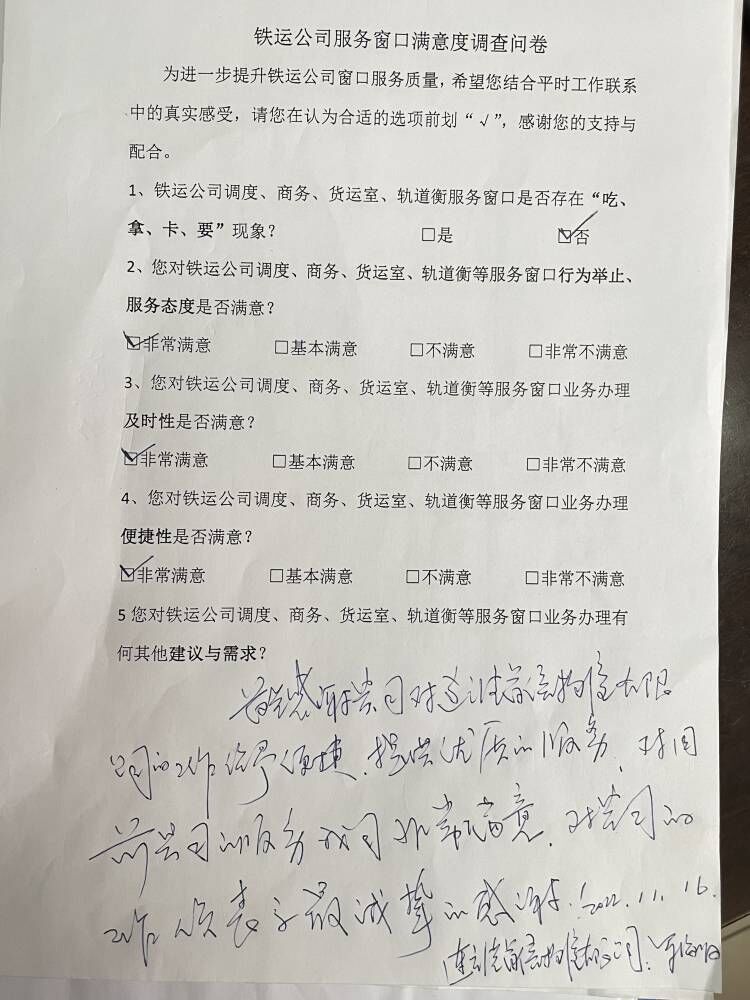 铁运公司服务窗口满意度调查问卷
为进一步提升铁运公司窗口服务质量，希望您结合平时工作联系
中的真实感受，请您在认为合适的选项前划“√”，感谢您的支持与
配合。
1、铁运公司调度、商务、货运室、轨道衡服务窗口是否存在“吃、
拿、卡、要”现象？ □是 ☑否
2、您对铁运公司调度、商务、货运室、轨道衡等服务窗口行为举止、
服务态度是否满意？
☑非常满意 □基本满意 □不满意 □非常不满意
3、您对铁运公司调度、商务、货运室、轨道衡等服务窗口业务办理
及时性是否满意？
☑非常满意 □基本满意 □不满意 □非常不满意
4、您对铁运公司调度、商务、货运室、轨道衡等服务窗口业务办理
便捷性是否满意？
☑非常满意 □基本满意 □不满意 □非常不满意
5您对铁运公司调度、商务、货运室、轨道衡等服务窗口业务办理有
何其他建议与需求？
感谢贵司对连云港 有限
公司的工作给予便捷，提供优质的服务，对目
前贵司的服务我司非常满意，对贵司的
工作 表示最诚挚的感谢！2022.11.16.
连云港 有限公司：